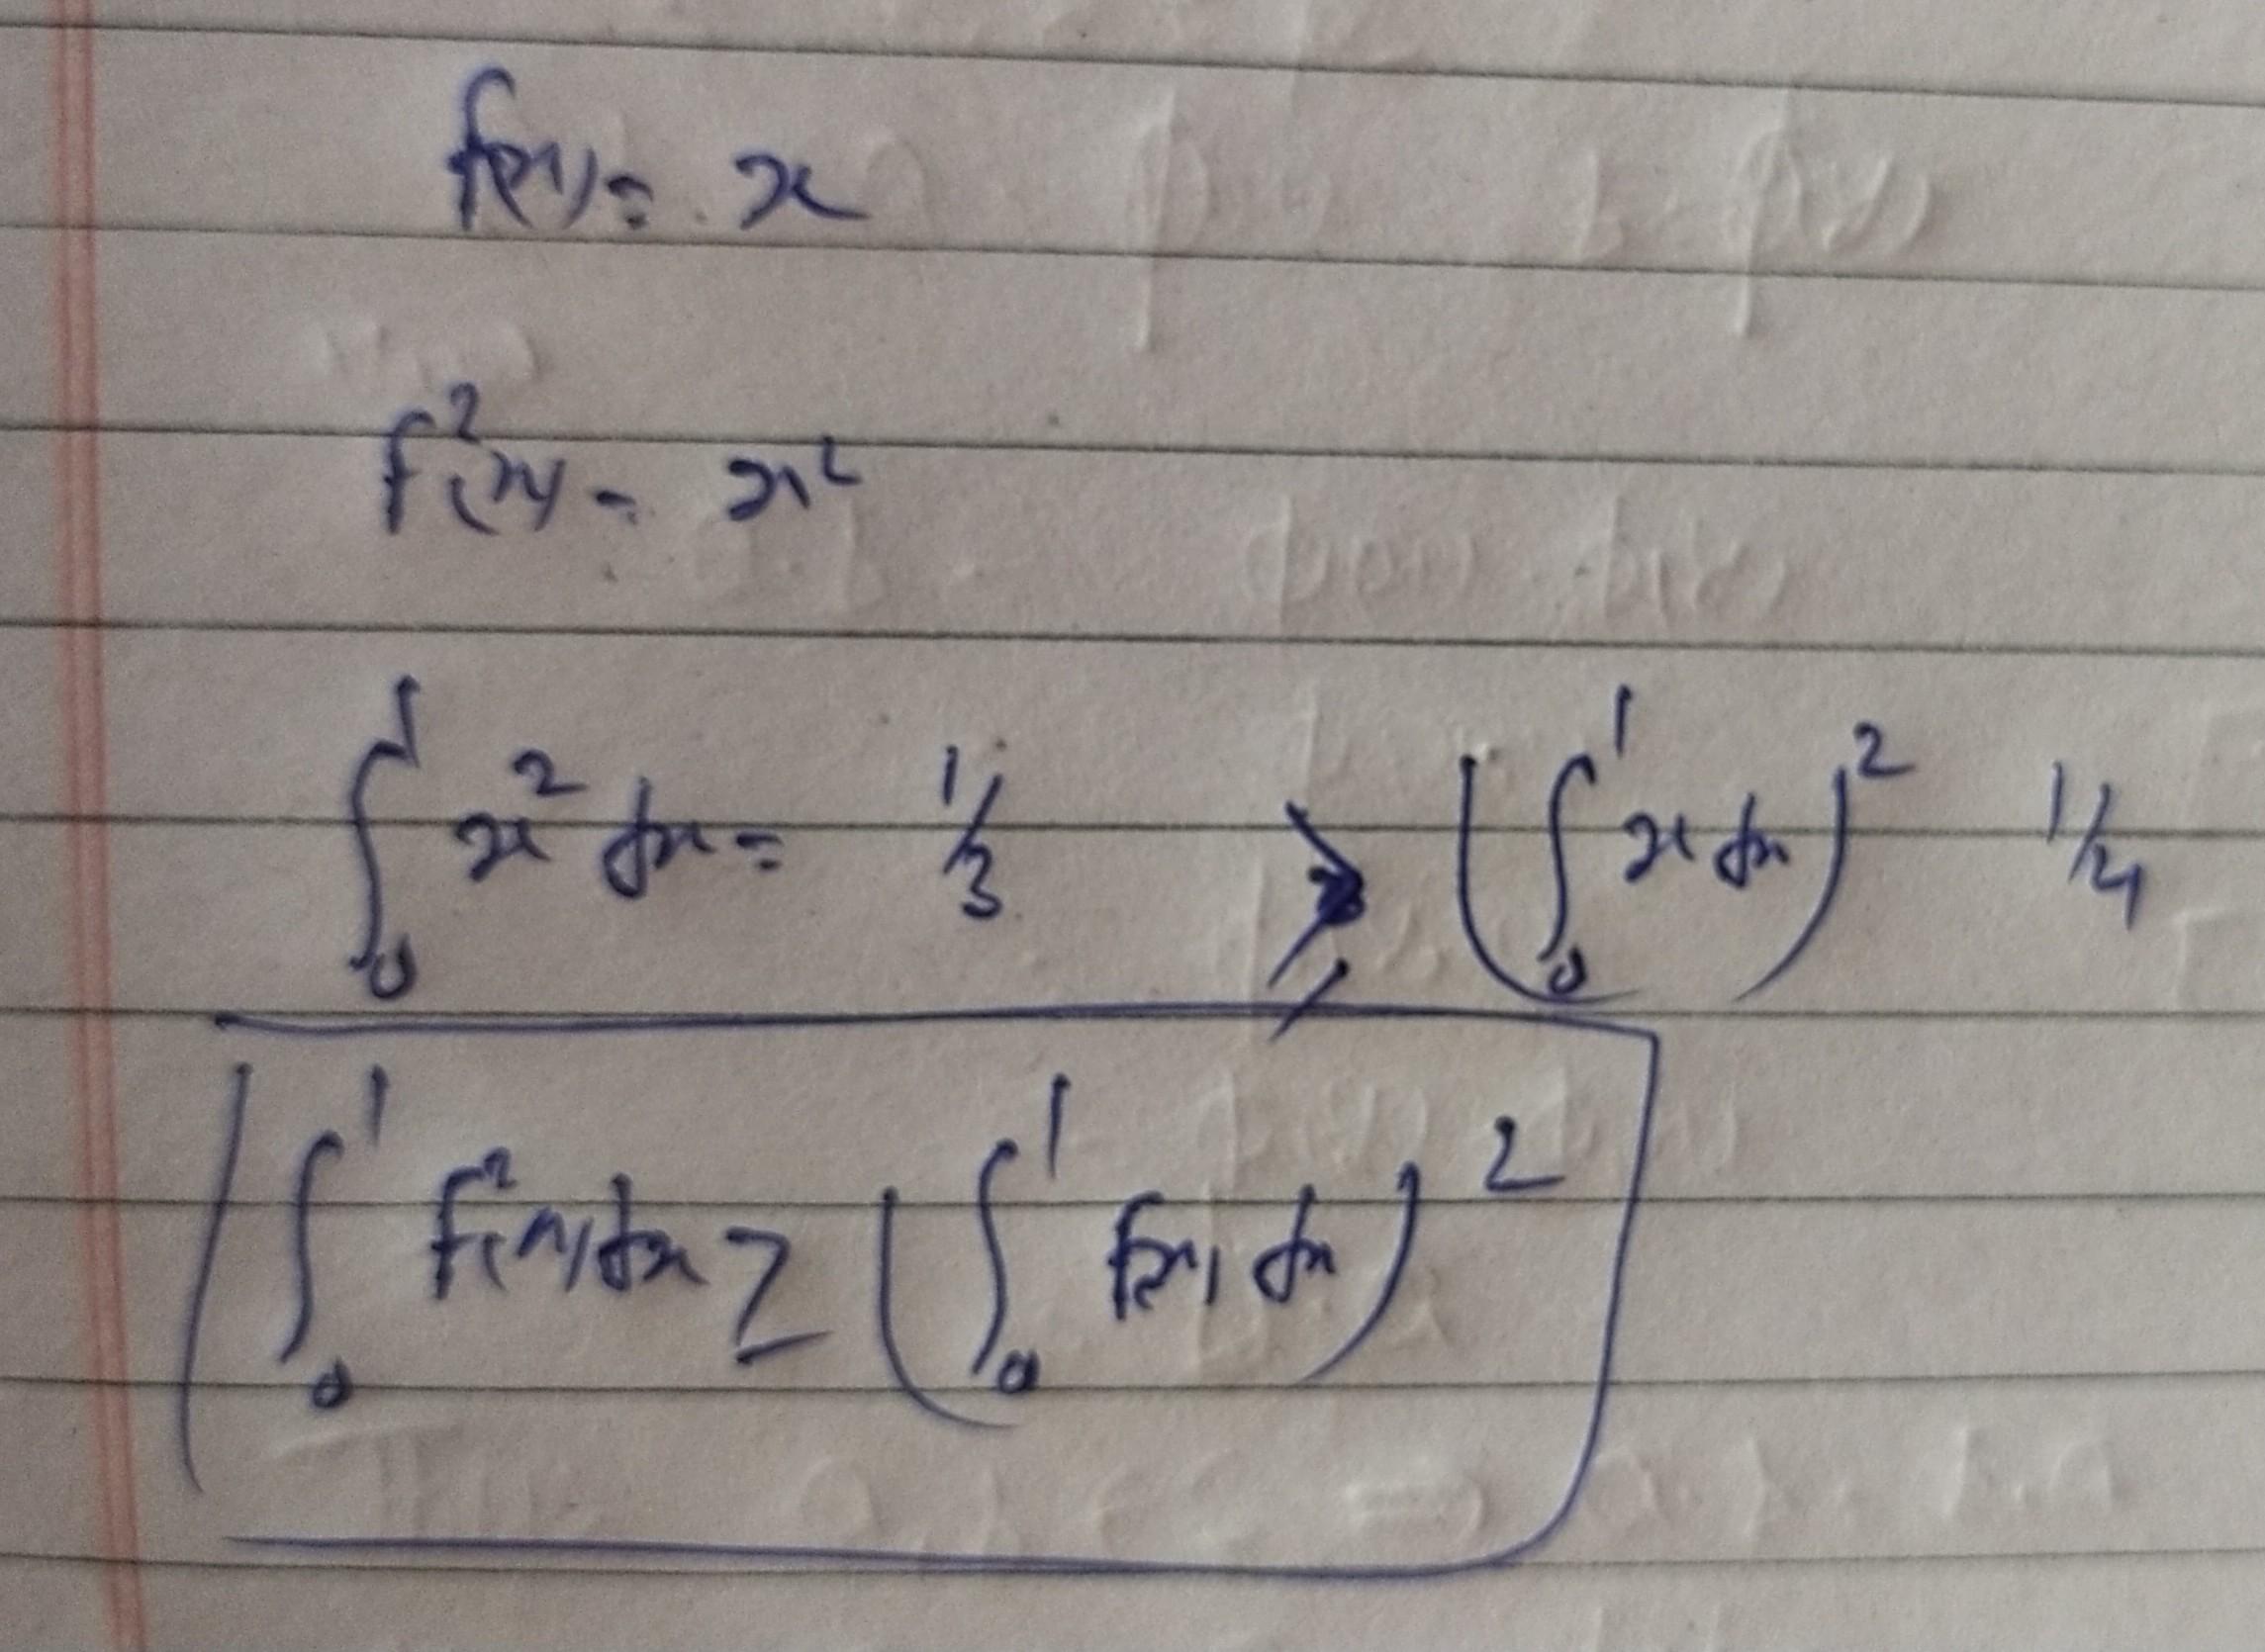 f(x) = x
f²(x) = x²
∫₀¹ x² dx = 1/3 ≥ (∫₀¹ x dx)² 1/4
∫₀¹ f²(x) dx ≥ (∫₀¹ f(x) dx)²